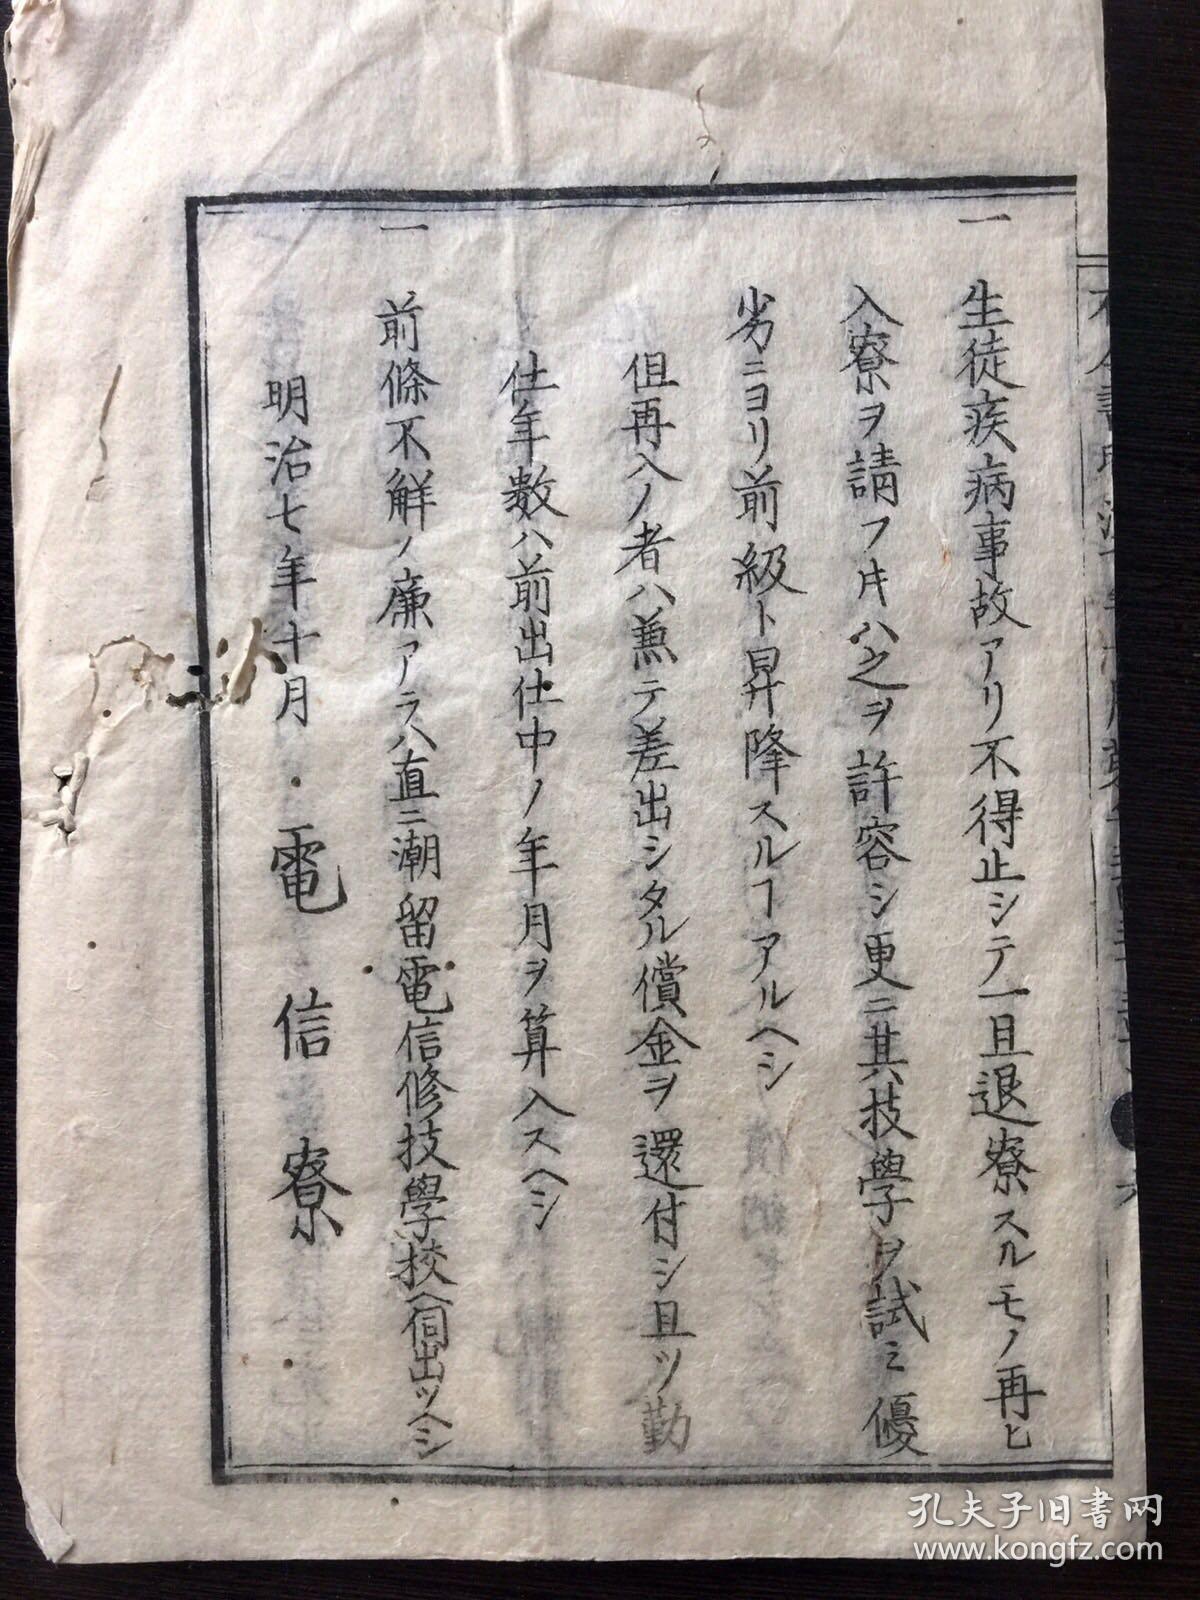 一
生徒疾病事故アリ不得止シテ一旦退寮スルモノ再ヒ
入寮ヲ請フ𪜈ハ之ヲ許容シ更ニ其技學ヲ試ミ優
劣ニヨリ前級ト昇降スルヿアルヘシ
但再入ノ者ハ兼テ差出シタル償金ヲ還付シ且ツ勤
仕年數ハ前出仕中ノ年月ヲ算入スヘシ
一
前條不解ノ廉アラハ直ニ潮留電信修技學校ヘ伺出ツヘシ
明治七年十月
電信寮
孔夫子旧书网
www.kongfz.com